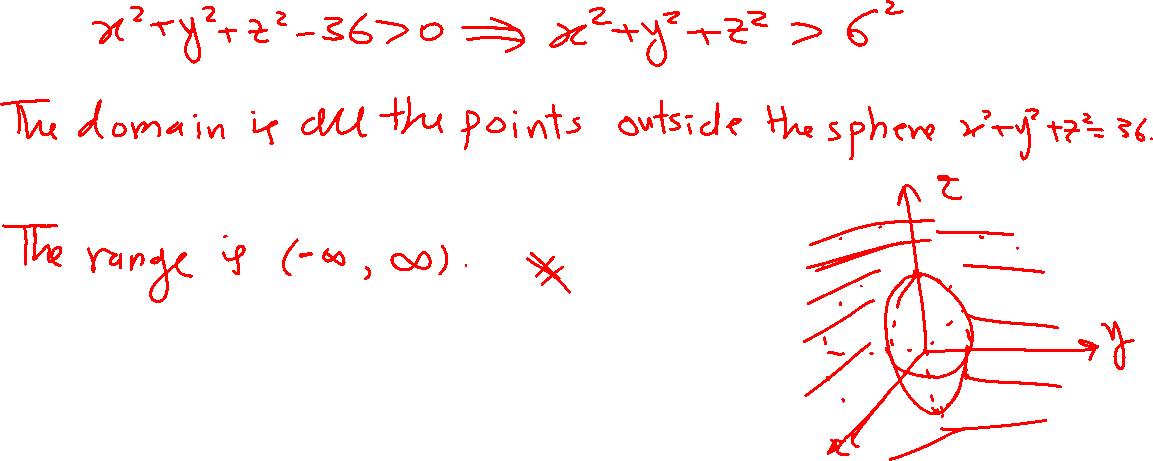 x²+y²+z²-36>0 ⟹ x²+y²+z² > 6²
The domain is all the points outside the sphere x²+y²+z²=36.
The range is (-∞, ∞).
z
y
x